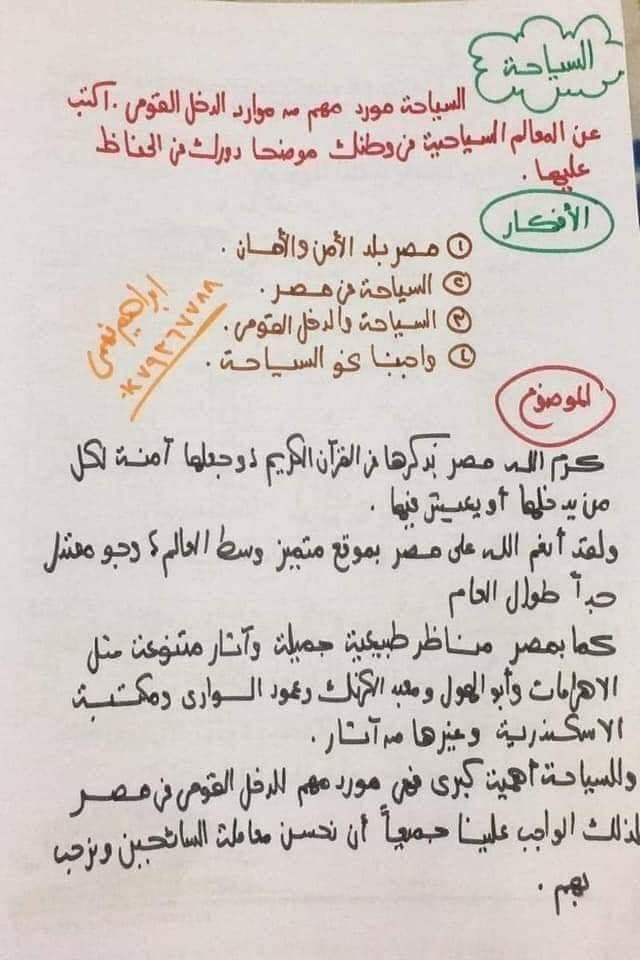 السياحة
السياحة مورد مهم من موارد الدخل القومى . اكتب
عن المعالم السياحية فى وطنك موضحا دورك فى الحفاظ
عليها .
الأفكار
١ مصر بلد الأمن والأمان .
٢ السياحة فى مصر .
٣ السياحة والدخل القومى .
٤ واجبنا نحو السياحة .
ابراهيم
الموضوع
كرم الله مصر بذكرها فى القرآن الكريم ، وجعلها آمنة لكل
من يدخلها أو يعيش فيها .
ولقد أنعم الله على مصر بموقع متميز وسط العالم ، وجو معتدل
جداً طوال العام
كما بمصر مناظر طبيعية جميلة وآثار متنوعة مثل
الاهرامات وأبو الهول ومعبد الكرنك وعمود السوارى ومكتبة
الاسكندرية وغيرها من آثار .
وللسياحة أهمية كبرى فهى مورد مهم للدخل القومى فى مصر
لذلك الواجب علينا جميعاً أن نحسن معاملة السائحين ونرحب
بهم .